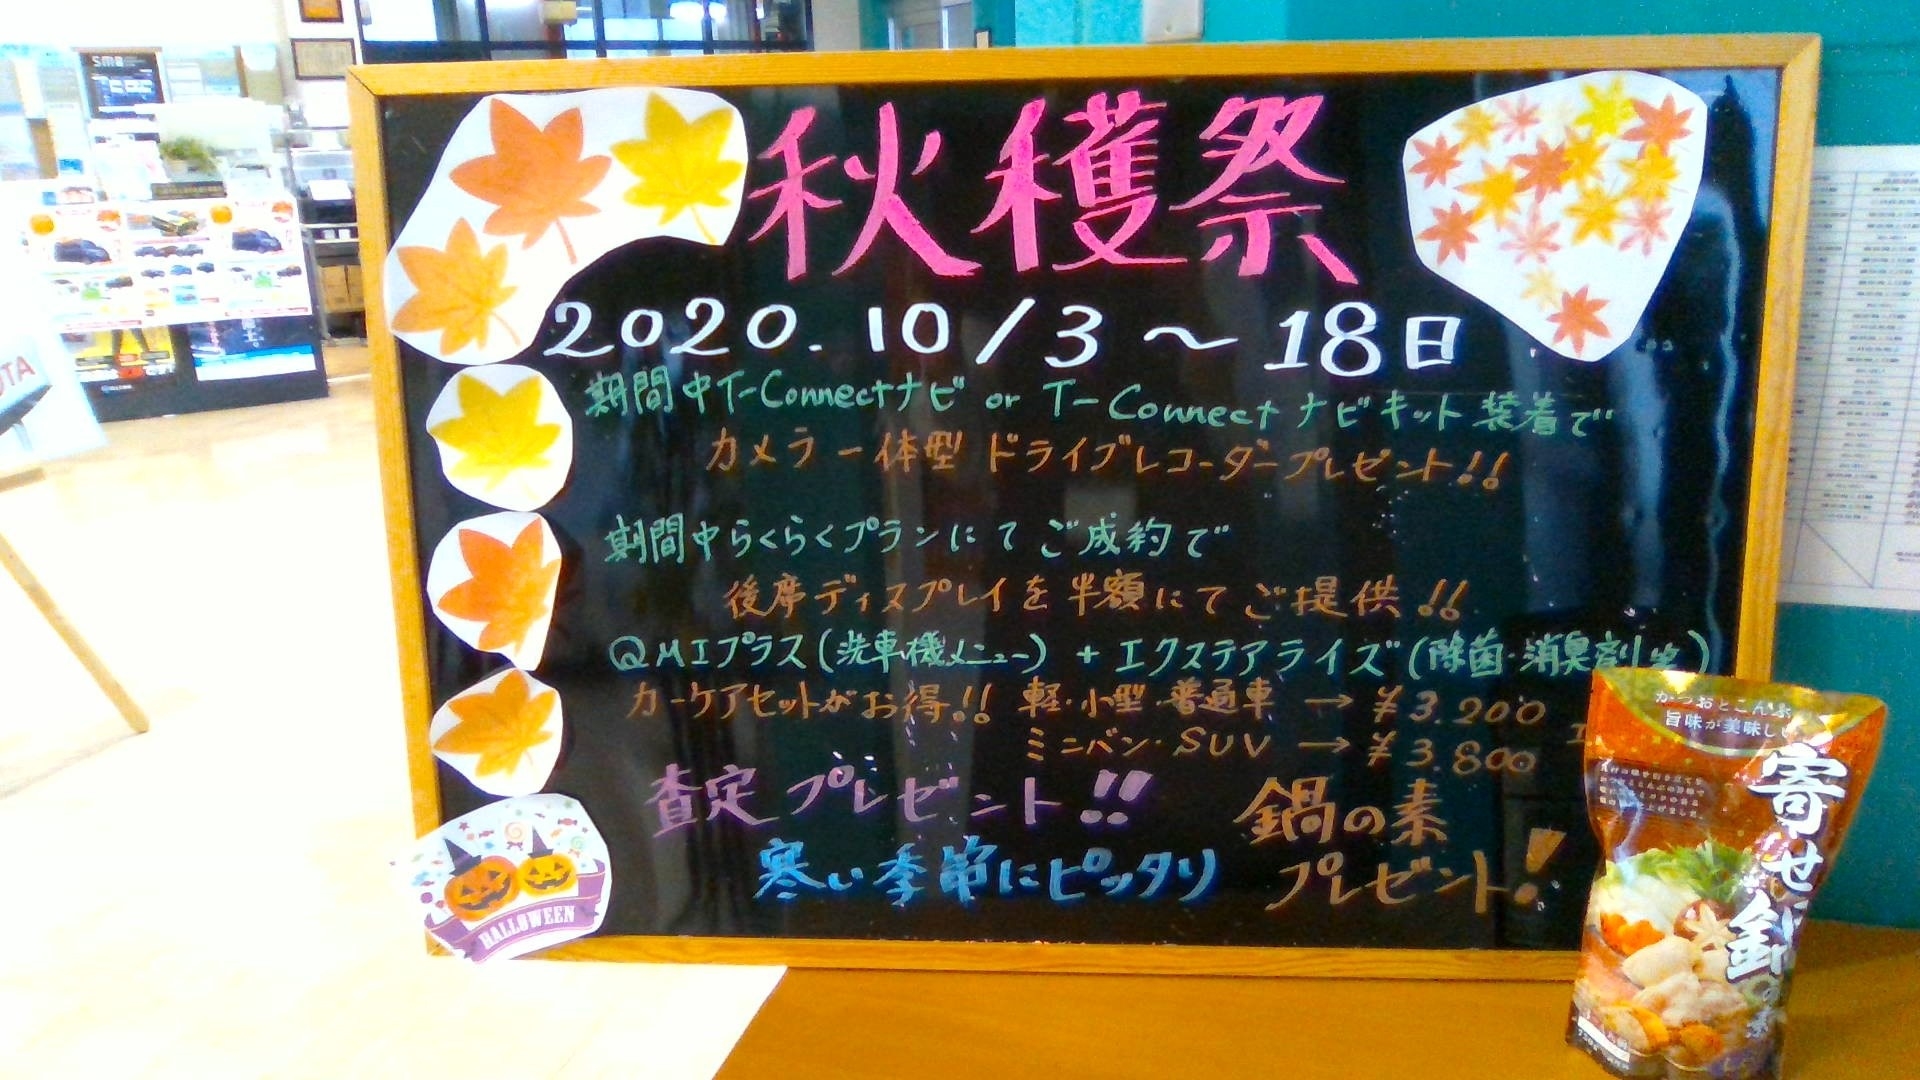 秋穫祭
2020.10/3〜18日
期間中T-Connectナビ or T-Connectナビキット装着で
カメラ一体型ドライブレコーダープレゼント!!
期間中らくらくプランにてご成約で
後席ディスプレイを半額にてご提供!!
QMIプラス(洗車機メニュー)+エクステアライズ(除菌・消臭剤
カーケアセットがお得!! 軽・小型・普通車→¥3.200
ミニバン・SUV→¥3.800
査定プレゼント!!
鍋の素
寒い季節にピッタリ
プレゼント!
HALLOWEEN
かつおとこんぶ
旨味が美味し
寄せ鍋